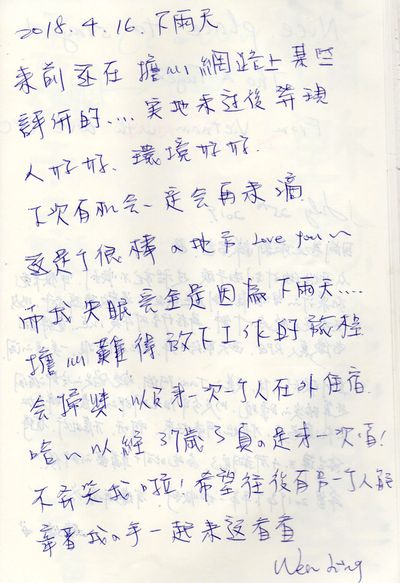 2018.4.16.下雨天
來前还在擔心網路上某些
評価的....実地來过後發現
人好好、環境好好.
下次有机会一定会再來滴
這是个很棒的地方 Love you~
而我失眠完全是因為下雨天....
擔心難得放下工作的旅程
会掃興、以及第一次一个人在外住宿.
哈~以經37歲了真的是第一次唷!
不要笑我啦!希望往後有另一个人能
牽著我的手一起來這看看
Wen Ling